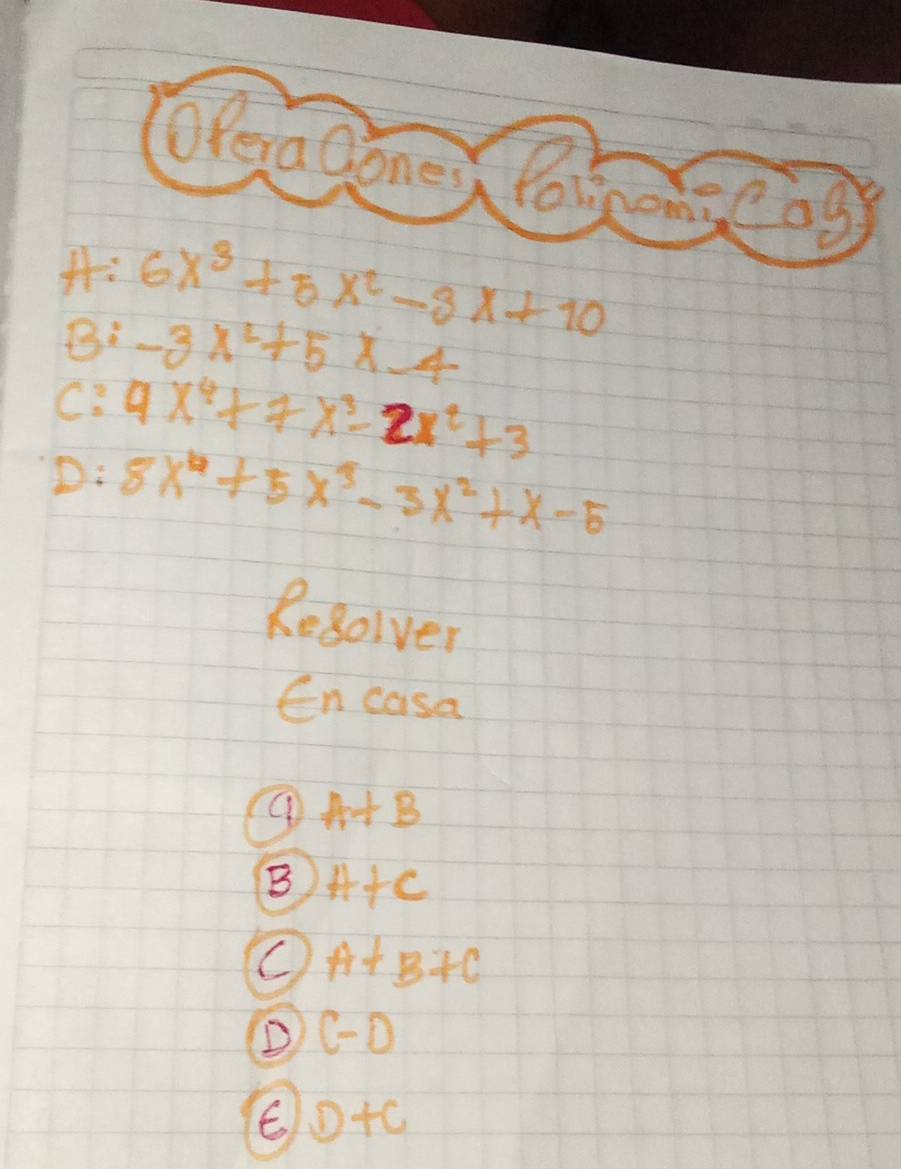 Operaciones Polinomicas
A: 6x³ + 5x² - 3x + 10
B: -3x² + 5x - 4
C: 9x⁴ + 7x³ - 2x² + 3
D: 8x⁴ + 5x³ - 3x² + x - 5
Resolver
En casa
a A+B
B A+C
C A+B+C
D C-D
E D+C